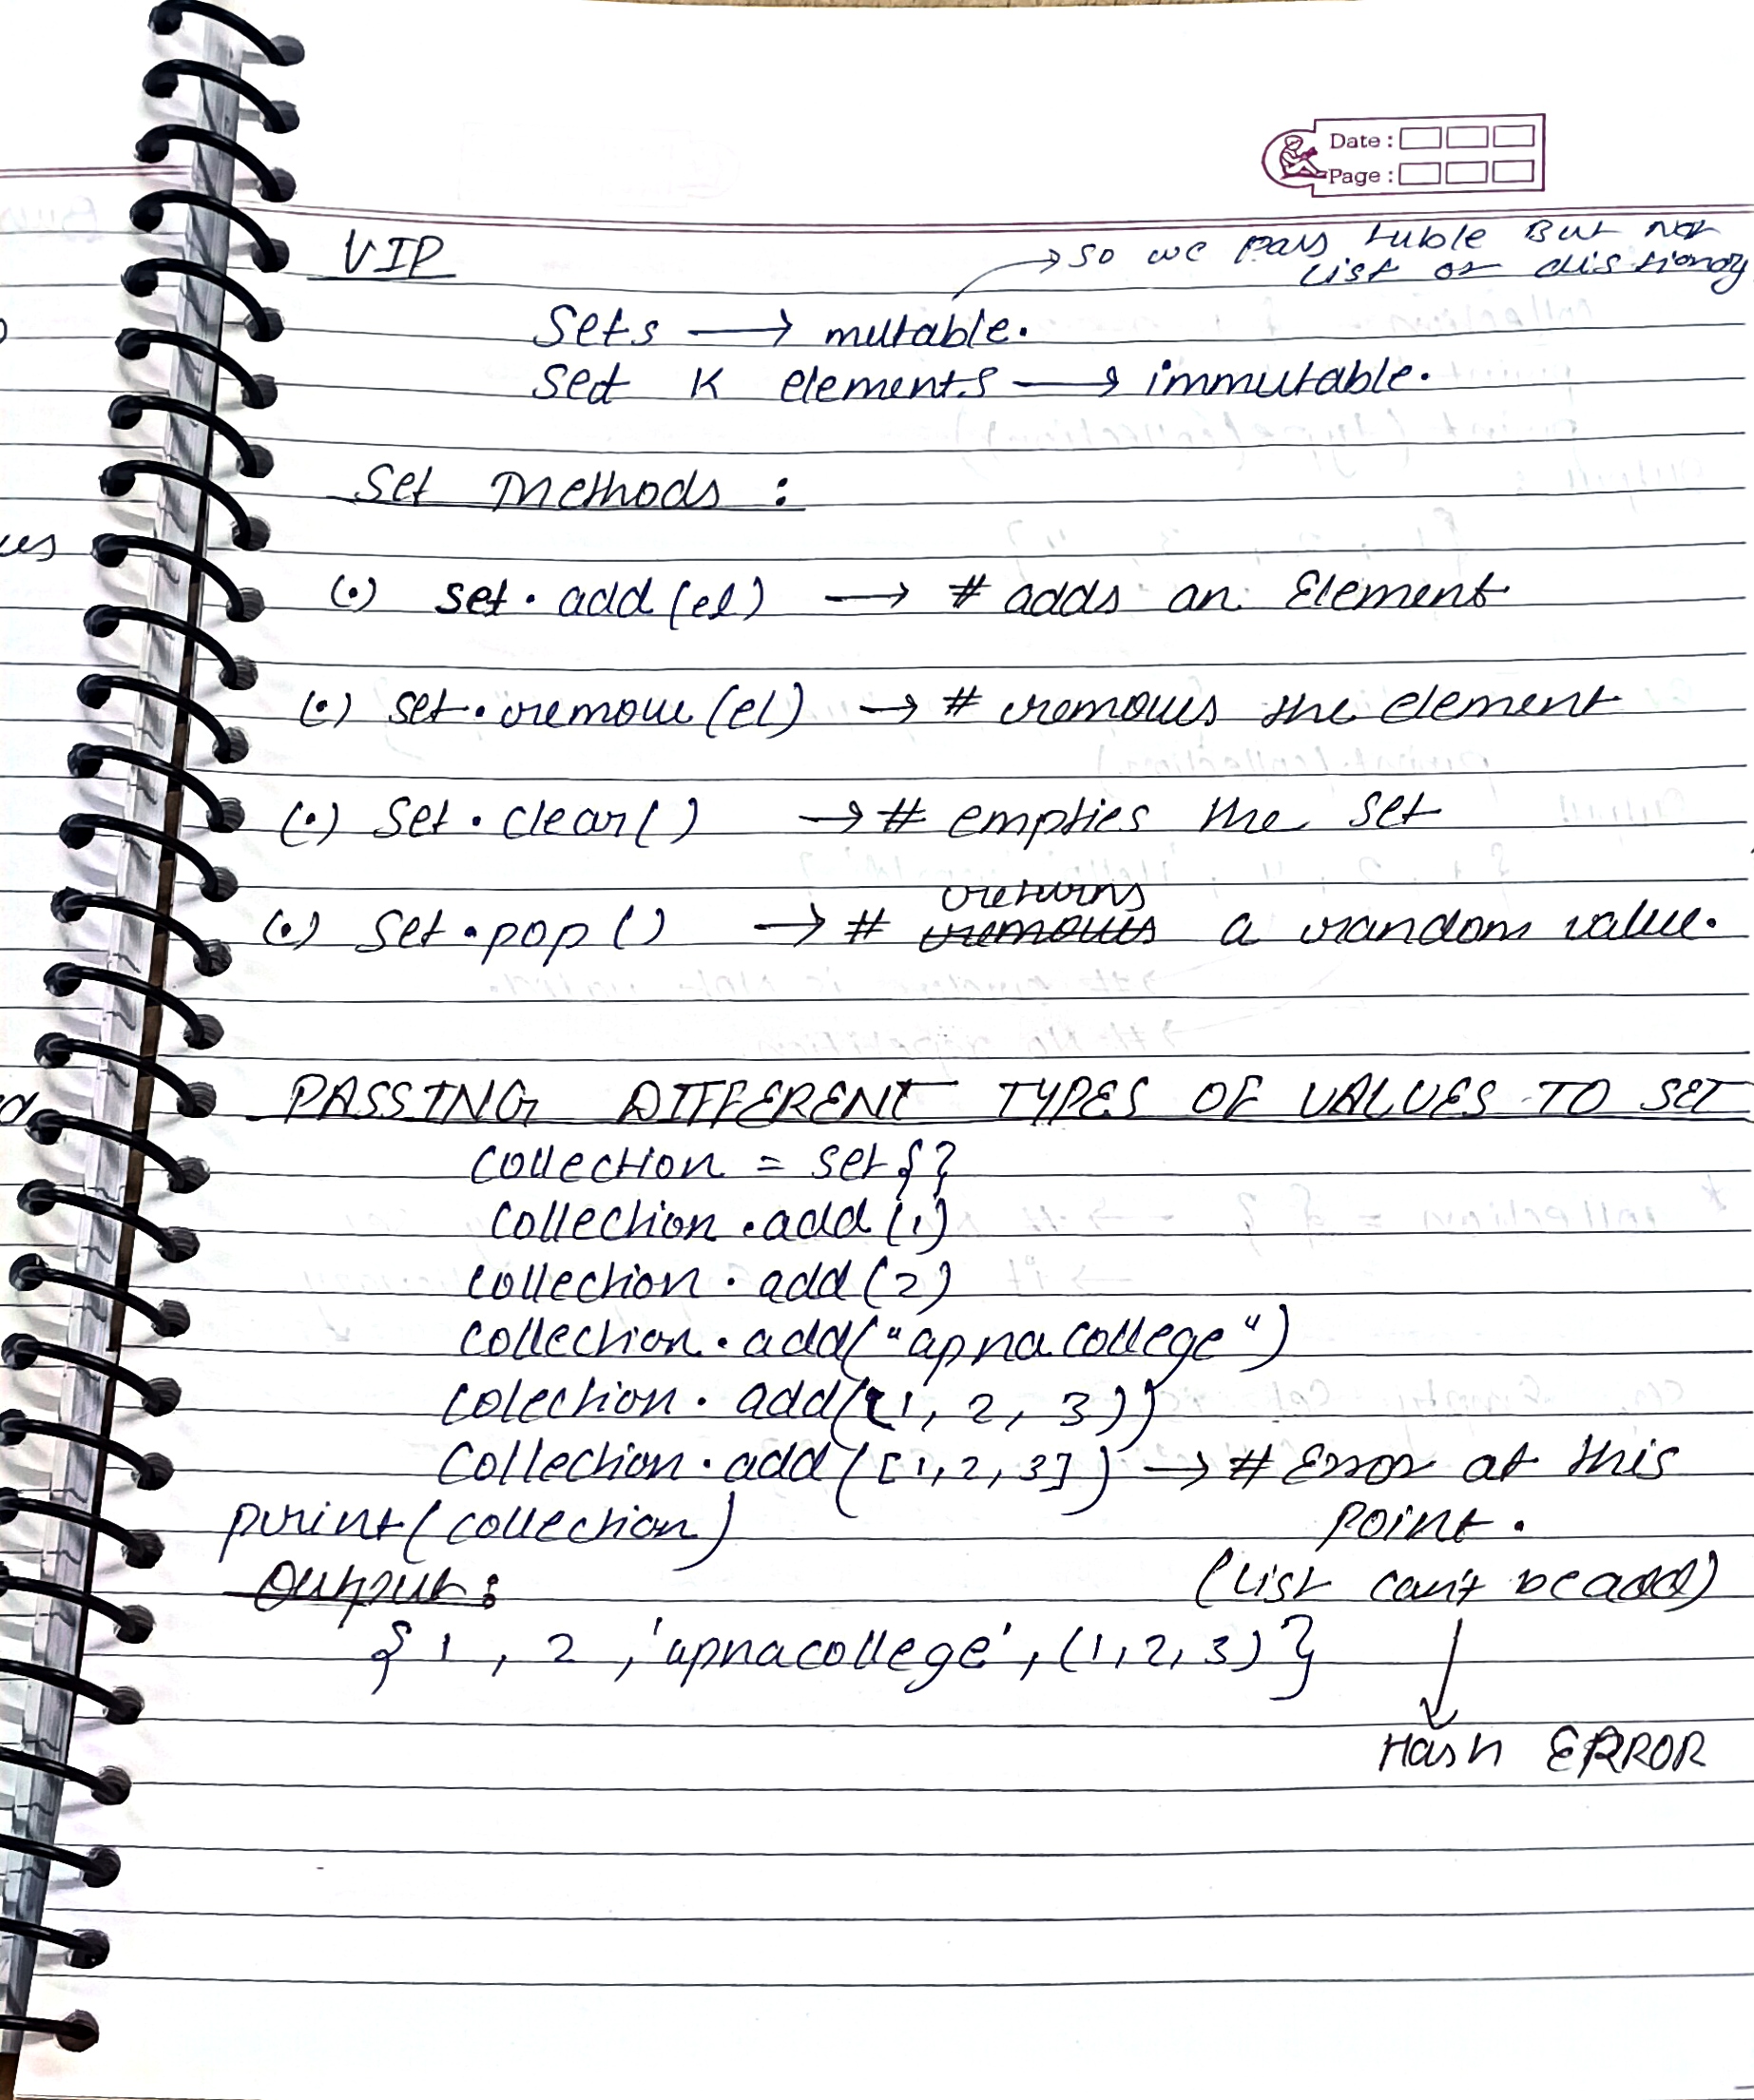 Date :
Page :
VIP
→ so we pass tuble But Not
List or distionary
Sets → mutable.
Set K elements → immutable.
Set Methods :
(•) set.add(el) → # adds an Element
(•) set.remove(el) → # removes the element
(•) set.clear() → # empties the set
returns
(•) set.pop() → # removes a random value.
PASSING DIFFERENT TYPES OF VALUES TO SET
collection = set{}
collection.add(1)
collection.add(2)
collection.add("apnacollege")
colection.add((1, 2, 3))
collection.add([1, 2, 3]) → # Error at this
print(collection)
point.
Output :
(List can't be add)
{ 1 , 2 , 'apnacollege', (1, 2, 3) }
Hash ERROR